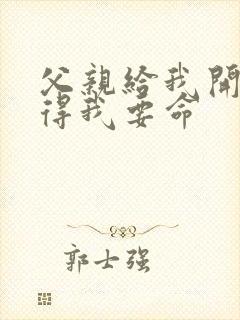 父親給我開
得我要命
郭士强